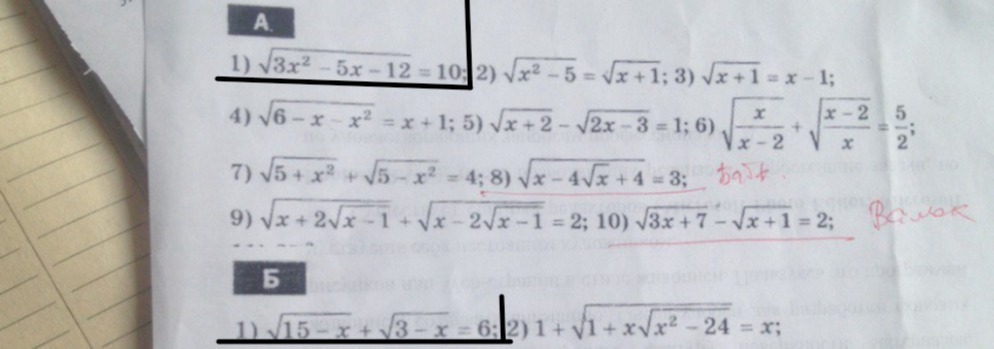 А
1) √(3x² − 5x − 12) = 10; 2) √(x² − 5) = √(x + 1); 3) √(x + 1) = x − 1;
4) √(6 − x − x²) = x + 1; 5) √(x + 2) − √(2x − 3) = 1; 6) √(x/(x − 2)) + √((x − 2)/x) = 5/2;
7) √(5 + x²) + √(5 − x²) = 4; 8) √(x − 4√x + 4) = 3;
9) √(x + 2√(x − 1)) + √(x − 2√(x − 1)) = 2; 10) √(3x + 7) − √(x + 1) = 2;
Б
1) √(15 − x) + √(3 − x) = 6; 2) 1 + √(1 + x√(x² − 24)) = x;